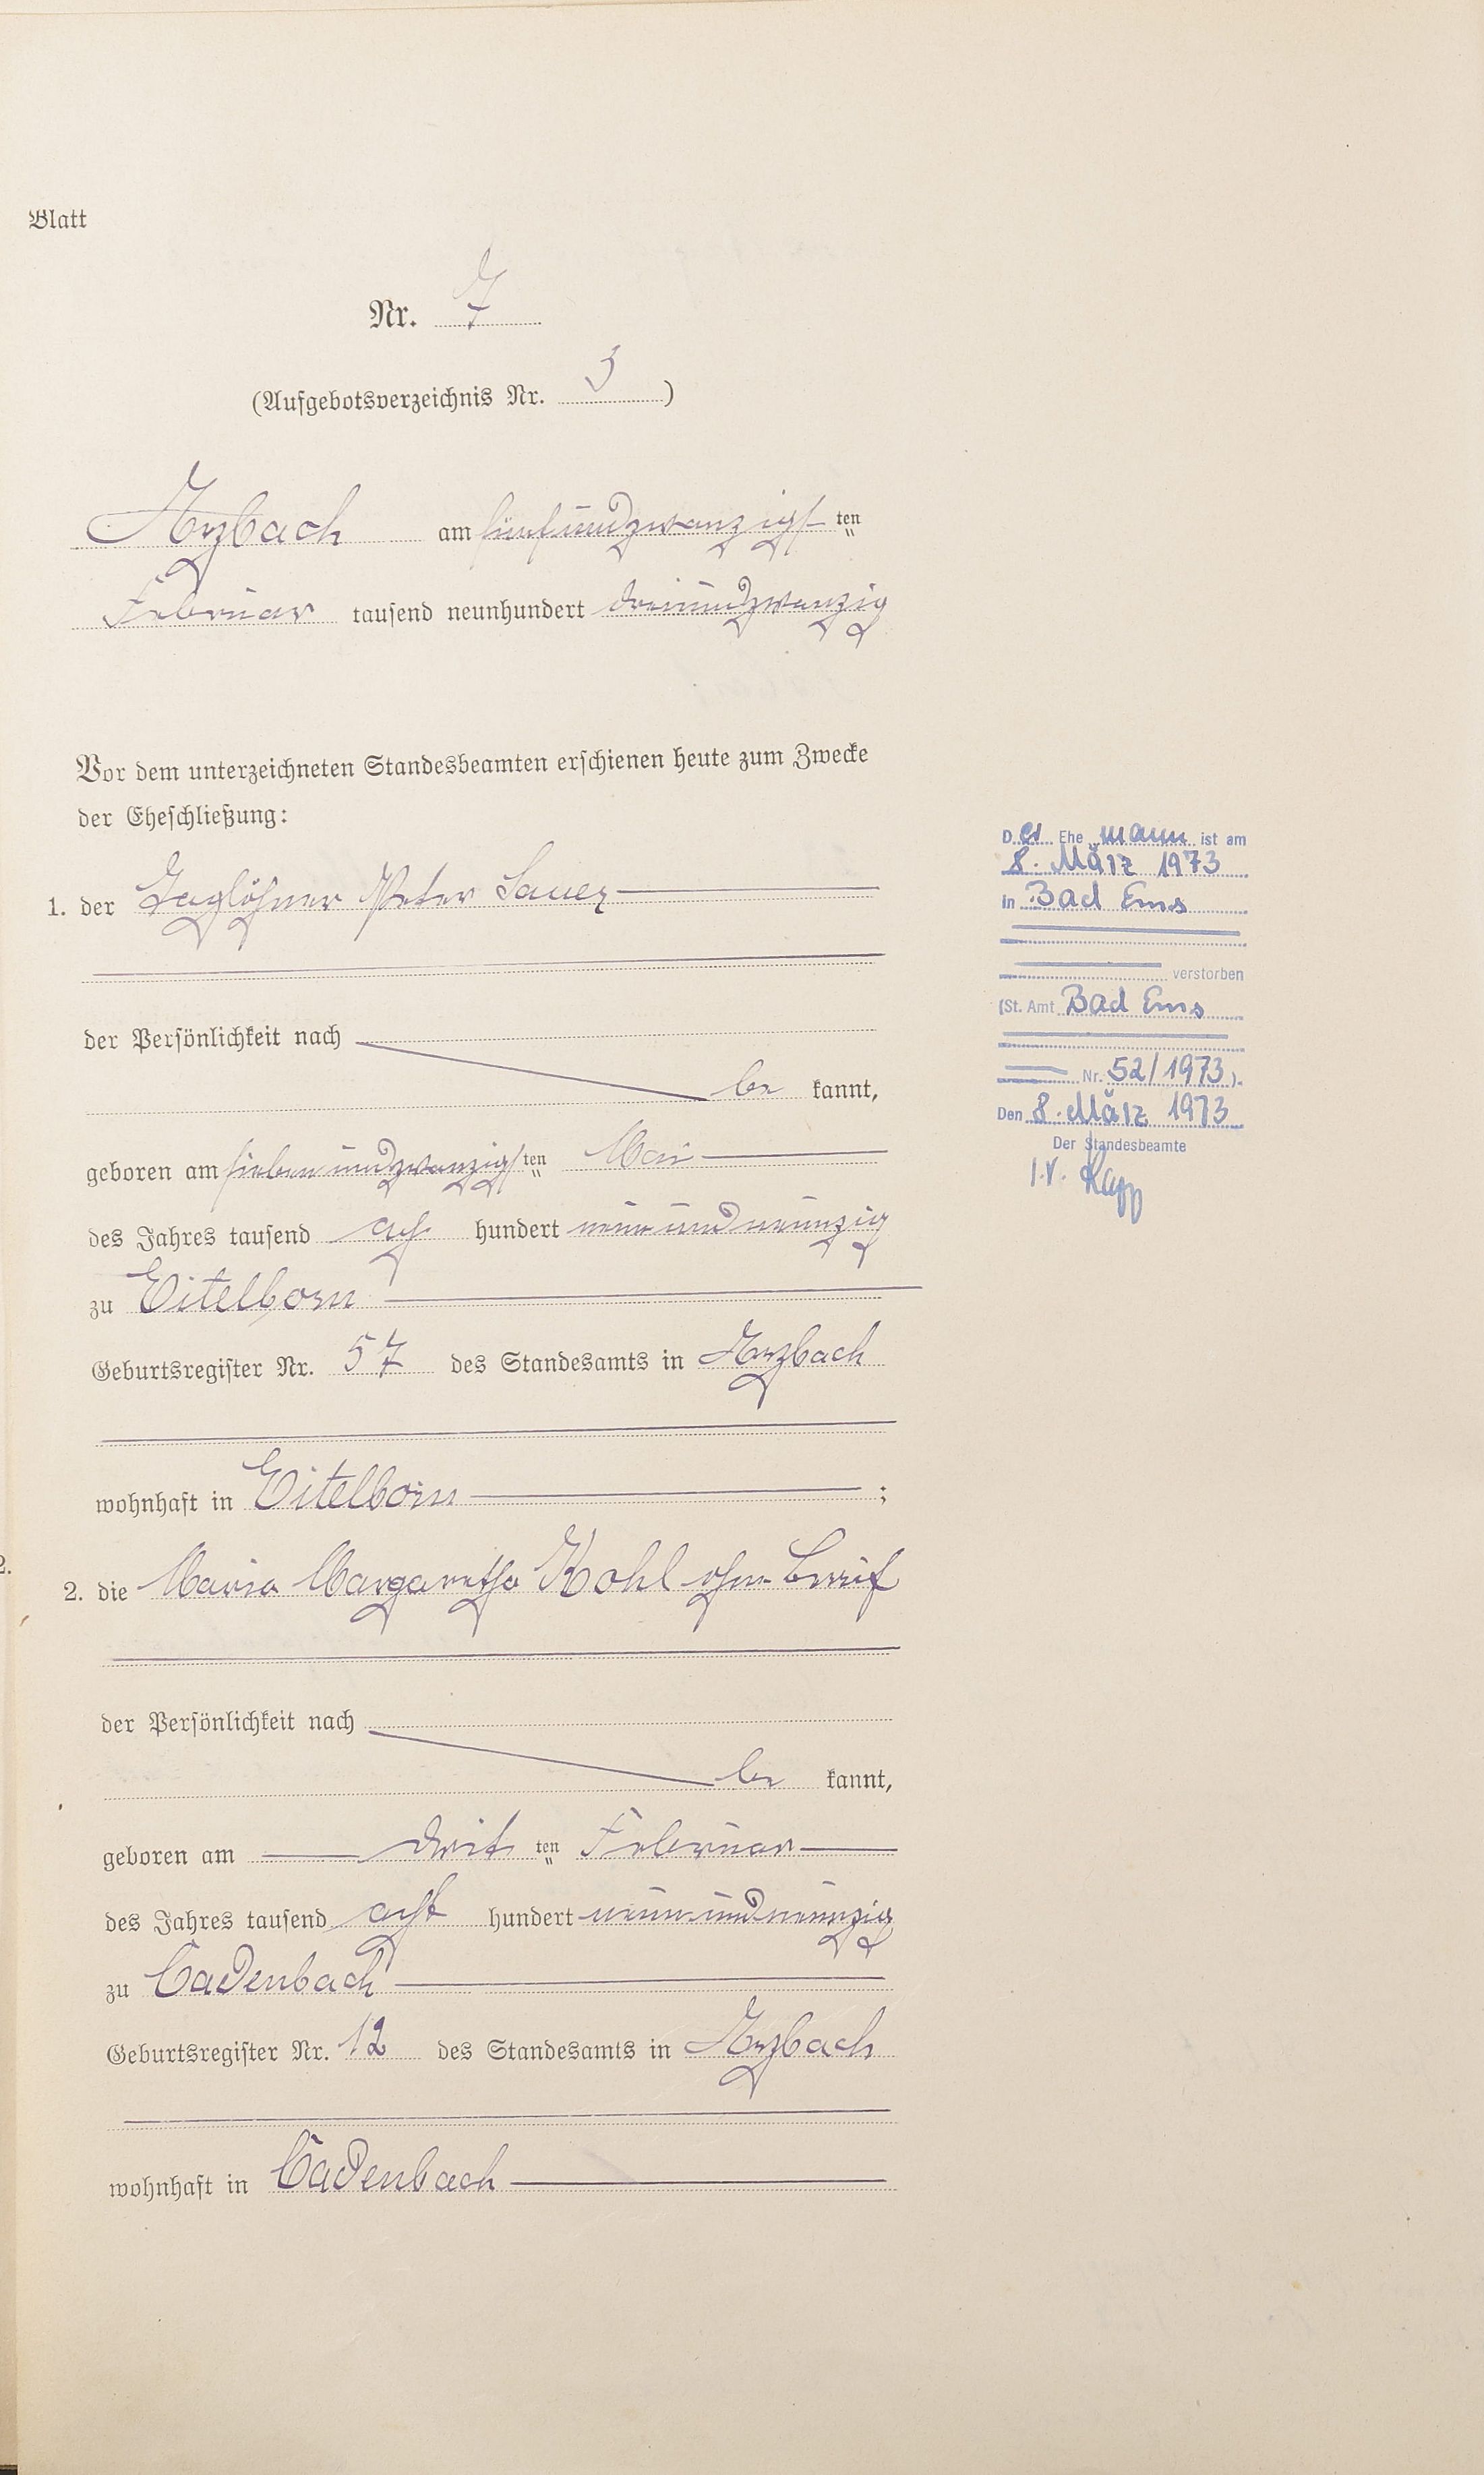 Blatt
Nr. 7
(Aufgebotsverzeichnis Nr. 3)
Arzbach am fünfundzwanzigst ten
Februar tausend neunhundert dreiundzwanzig
Vor dem unterzeichneten Standesbeamten erschienen heute zum Zwecke
der Eheschließung:
1. der Taglöhner Peter Sauer
der Persönlichkeit nach
be kannt,
geboren am siebenundzwanzigst ten Mai
des Jahres tausend acht hundert neunundneunzig
zu Eitelborn
Geburtsregister Nr. 57 des Standesamts in Arzbach
wohnhaft in Eitelborn ;
2. die Maria Margaretha Kohl ohne Beruf
der Persönlichkeit nach
be kannt,
geboren am drit ten Februar
des Jahres tausend acht hundert neunundneunzig
zu Cadenbach
Geburtsregister Nr. 12 des Standesamts in Arzbach
wohnhaft in Cadenbach
Der Ehe mann ist am
8. März 1973
in Bad Ems
verstorben
(St. Amt Bad Ems
Nr. 52/1973).
Den 8. März 1973
Der Standesbeamte
I.V.